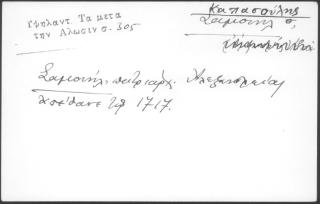 Υψηλαντ Τα μετα
την Αλωσιν σ. 305
Καπασούλης
Σαμουήλ
Σαμουήλ πατριάρχ. Αλεξανδρείας
απέθανε τῷ 1717.